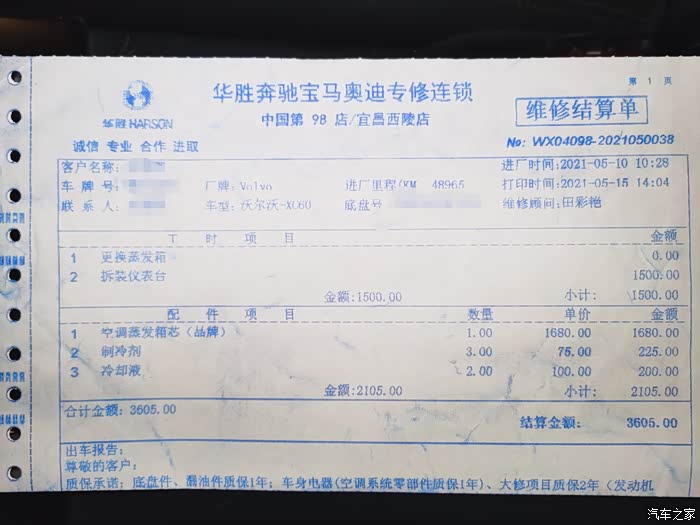 第 1 页
华胜奔驰宝马奥迪专修连锁
华胜 HARSON
中国第 98 店/宜昌西陵店
维修结算单
诚信 专业 合作 进取
No: WX04098-2021050038
客户名称: 进厂时间:2021-05-10 10:28
车 牌 号: 厂牌: Volvo 进厂里程(KM 48965 打印时间:2021-05-15 14:04
联 系 人: 车型: 沃尔沃-XC60 底盘号 维修顾问:田彩艳
工 时 项 目 金额
1 更换蒸发箱 0.00
2 拆装仪表台 1500.00
金额:1500.00 小计: 1500.00
配 件 项 目 数量 单价 金额
1 空调蒸发箱芯（品牌） 1.00 1680.00 1680.00
2 制冷剂 3.00 75.00 225.00
3 冷却液 2.00 100.00 200.00
金额:2105.00 小计: 2105.00
合计金额: 3605.00 结算金额: 3605.00
出车报告:
尊敬的客户:
质保承诺: 底盘件、漏油件质保1年; 车身电器(空调系统零部件质保1年)、大修项目质保2年（发动机
汽车之家